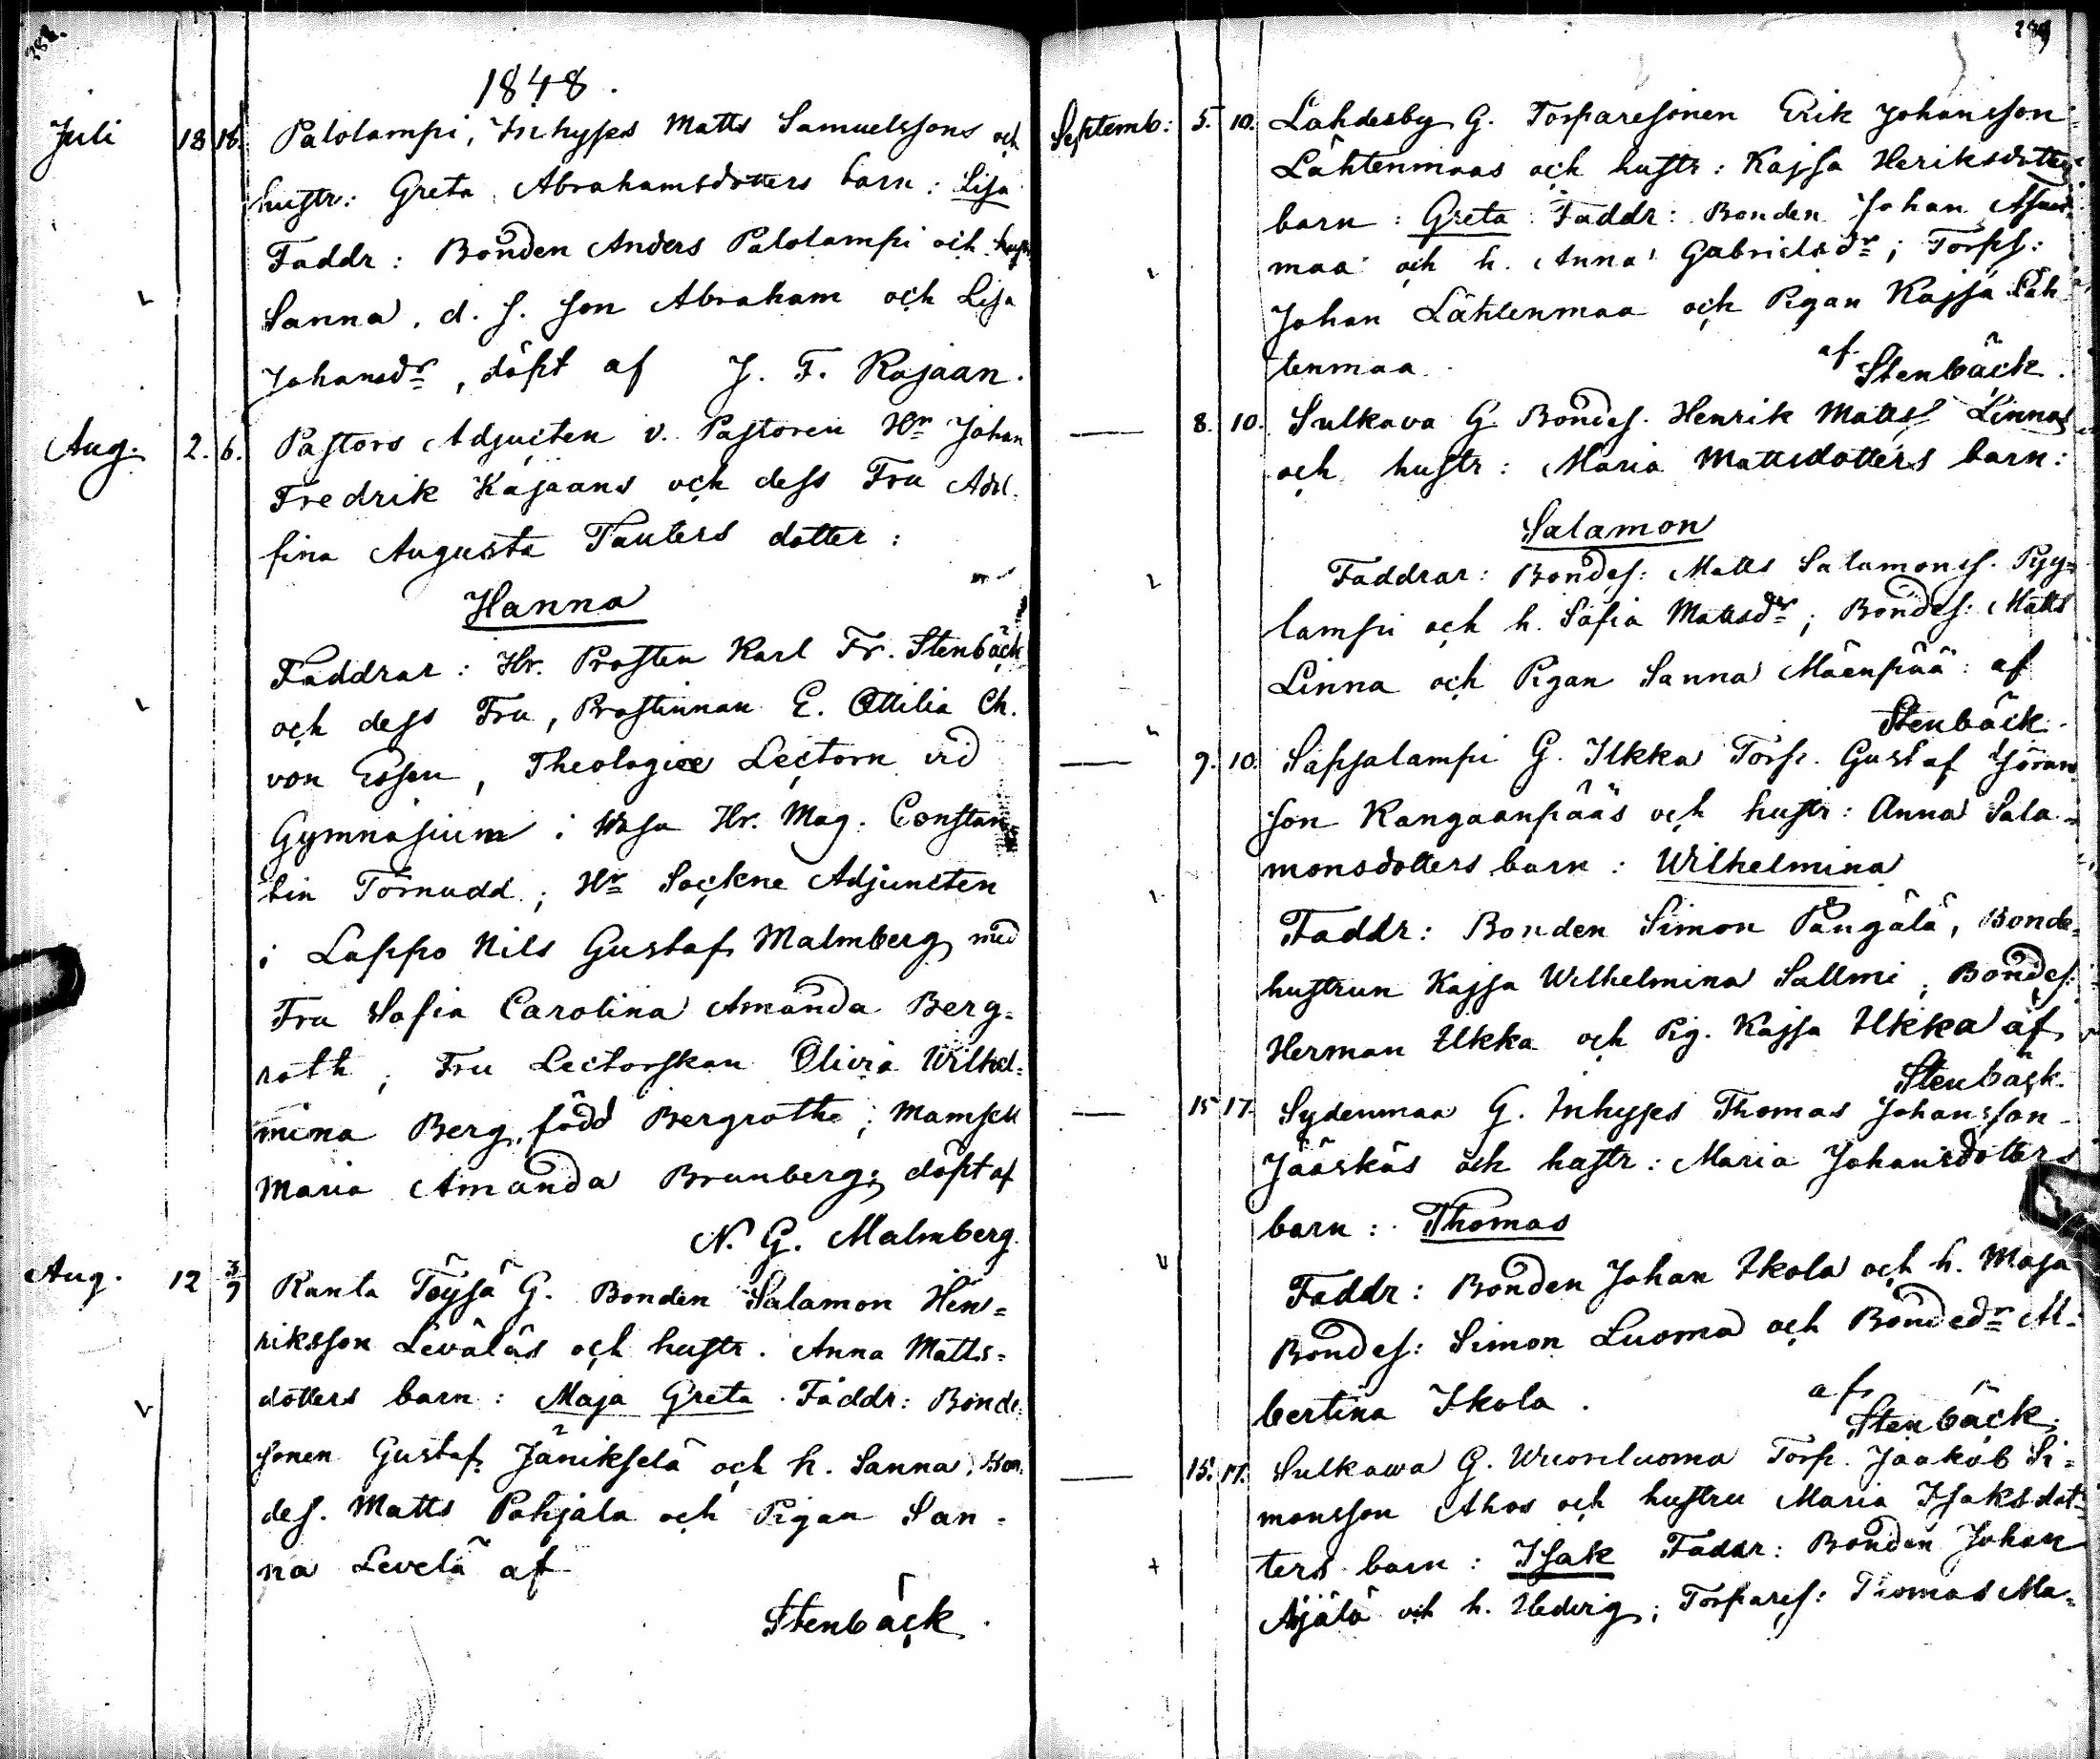 1848.
Juli 18 18. Palolampi, Inhyses Matts Samuelssons och
hustr: Greta Abrahamsdotters barn: Lisa
Faddr: Bonden Anders Palolampi och hustr
Sanna, d. s. son Abraham och Lisa
Johansdr, döpt af J. F. Kajaan.
Aug. 2. 6. Pastors Adjucten v. Pastoren Hr Johan
Fredrik Kajaans och dess Fru Adel-
fina Augusta Tauters dotter:
Hanna
Faddrar: Hr. Prosten Karl Fr. Stenbäck
och dess Fru, Prostinnan E. Ottilia Ch.
von Essen, Theologiæ Lectorn vid
Gymnasium i Wasa Hr. Mag. Constan
tin Törnudd; Hr Sockne Adjuncten
i Lappo Nils Gustaf Malmberg med
Fru Sofia Carolina Amanda Berg-
roth; Fru Lectorskan Olivia Wilhel-
mina Berg, född Bergroth; Mamsell
Maria Amanda Brunberg; döpt af
N. G. Malmberg.
Aug. 12 3/9 Ranta Töysä G. Bonden Salamon Hen=
riksson Leväläs och hustr. Anna Matts=
dotters barn: Maja Greta. Faddr: Bonde-
sonen Gustaf Jänikselä och h. Sanna, Bon-
des. Matts Pohjala och Pigan San-
na Levelä af
Stenbäck.
289
Septemb: 5. 10. Lahdesby G. Torparesonen Erik Johansson
Lähtenmaas och hustr: Kajsa Heriksdotters
barn: Greta Faddr: Bonden Johan
maa och h. Anna Gabrielsdr; Torps:
Johan Lähtenmaa och Pigan Kajsa Läh
tenmaa. af Stenbäck.
— 8. 10. Sulkava G. Bondes. Henrik Matts Linnas
och hustr: Maria Mattsdotters barn:
Salamon
Faddrar: Bondes: Matts Salamons. Pyy=
lampi och h. Sofia Mattsdr; Bondes: Matts
Linna och Pigan Sanna Mäenpää: af
Stenbäck.
— 9. 10. Sapsalampi G. Ilkka Torp. Gustaf Göran
son Kangaanpääs och hustr: Anna Sala-
monsdotters barn: Wilhelmina
Faddr: Bonden Simon Pängälä, Bonde=
hustrun Kajsa Wilhelmina Sallmi; Bondes:
Herman Ilkka och Pig. Kajsa Ilkka af
Stenbäck.
— 15 17. Sydenmaa G. Inhyses Thomas Johansson
Jääskäs och hustr: Maria Johansdotters
barn: Thomas
Faddr: Bonden Johan Ikola och h. Maja
Bondes: Simon Luoma och Bondedr Al-
bertina Ikola. af Stenbäck.
— 15. 17. Sulkawa G. Wuoriluoma Torp. Jaakob Si=
monsson Ahos och hustru Maria Isaksdot-
ters barn: Isak Faddr: Bonden Johan
Äijälä och h. Hedvig; Torpares: Thomas Ma=